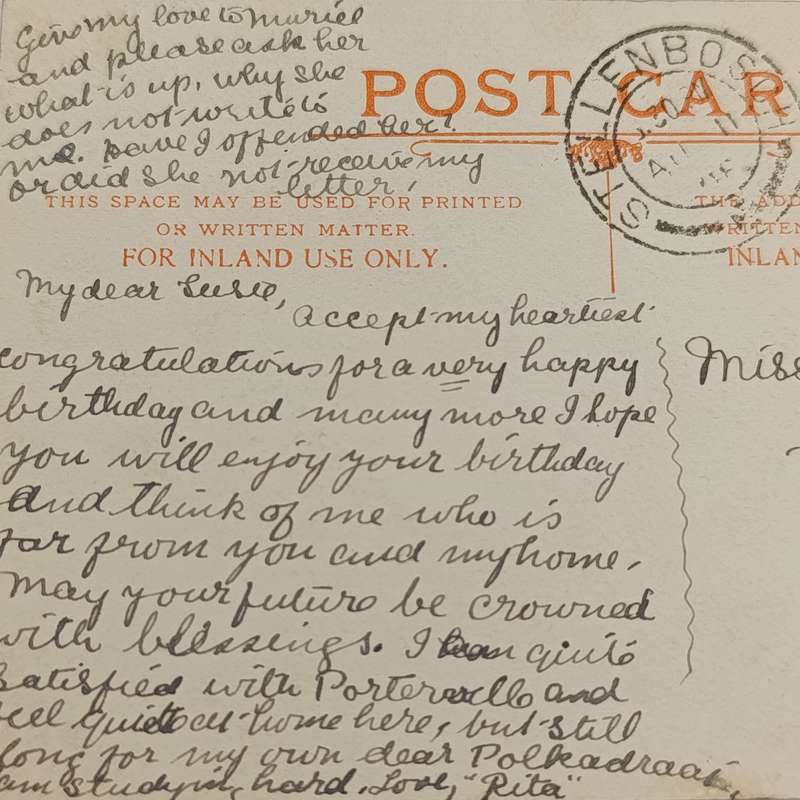 Give my love to Muriel
and please ask her
what is up, why she
does not write to
me. have I offended her?
or did she not receive my
letter,
POST CAR
STELLENBOSCH
AU 11
THIS SPACE MAY BE USED FOR PRINTED
OR WRITTEN MATTER.
FOR INLAND USE ONLY.
THE ADD
WRITTEN
INLAN
My dear Susie,
accept my heartiest
congratulations for a very happy
birthday and many more I hope
you will enjoy your birthday
and think of me who is
far from you and my home.
May your future be crowned
with blessings. I am quite
satisfied with Porterville and
feel quite at home here, but still
long for my own dear Polkadraai,
am studying hard. Love, "Rita"
Miss